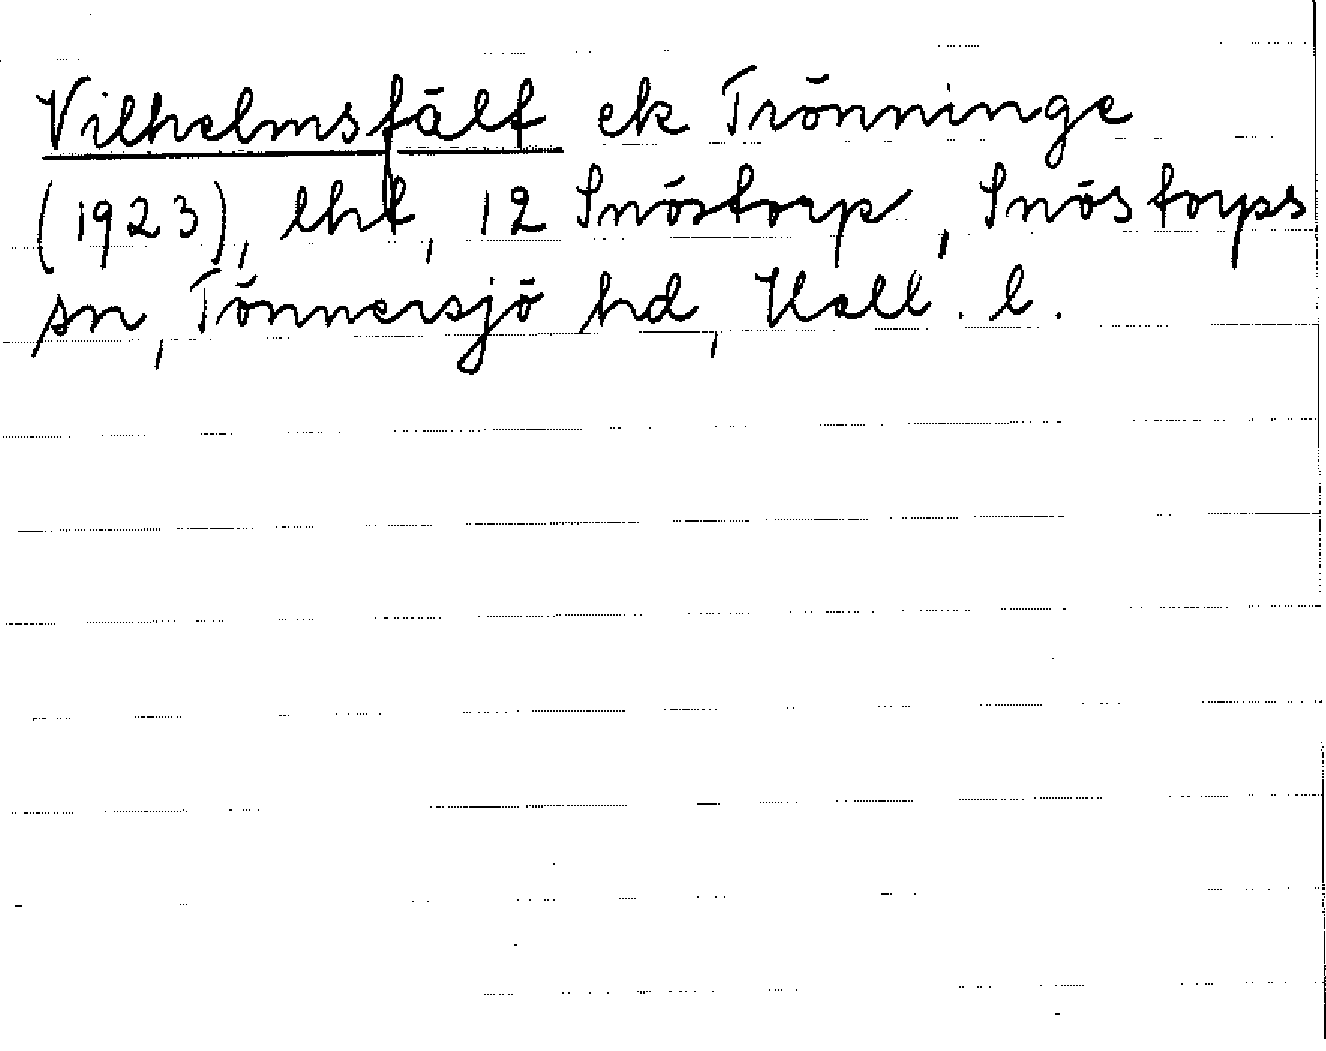 Vilhelmsfält ek Trönninge
(1923), lht, 12 Snöstorp, Snöstorps
sn, Tönnersjö hd, Hall. l.